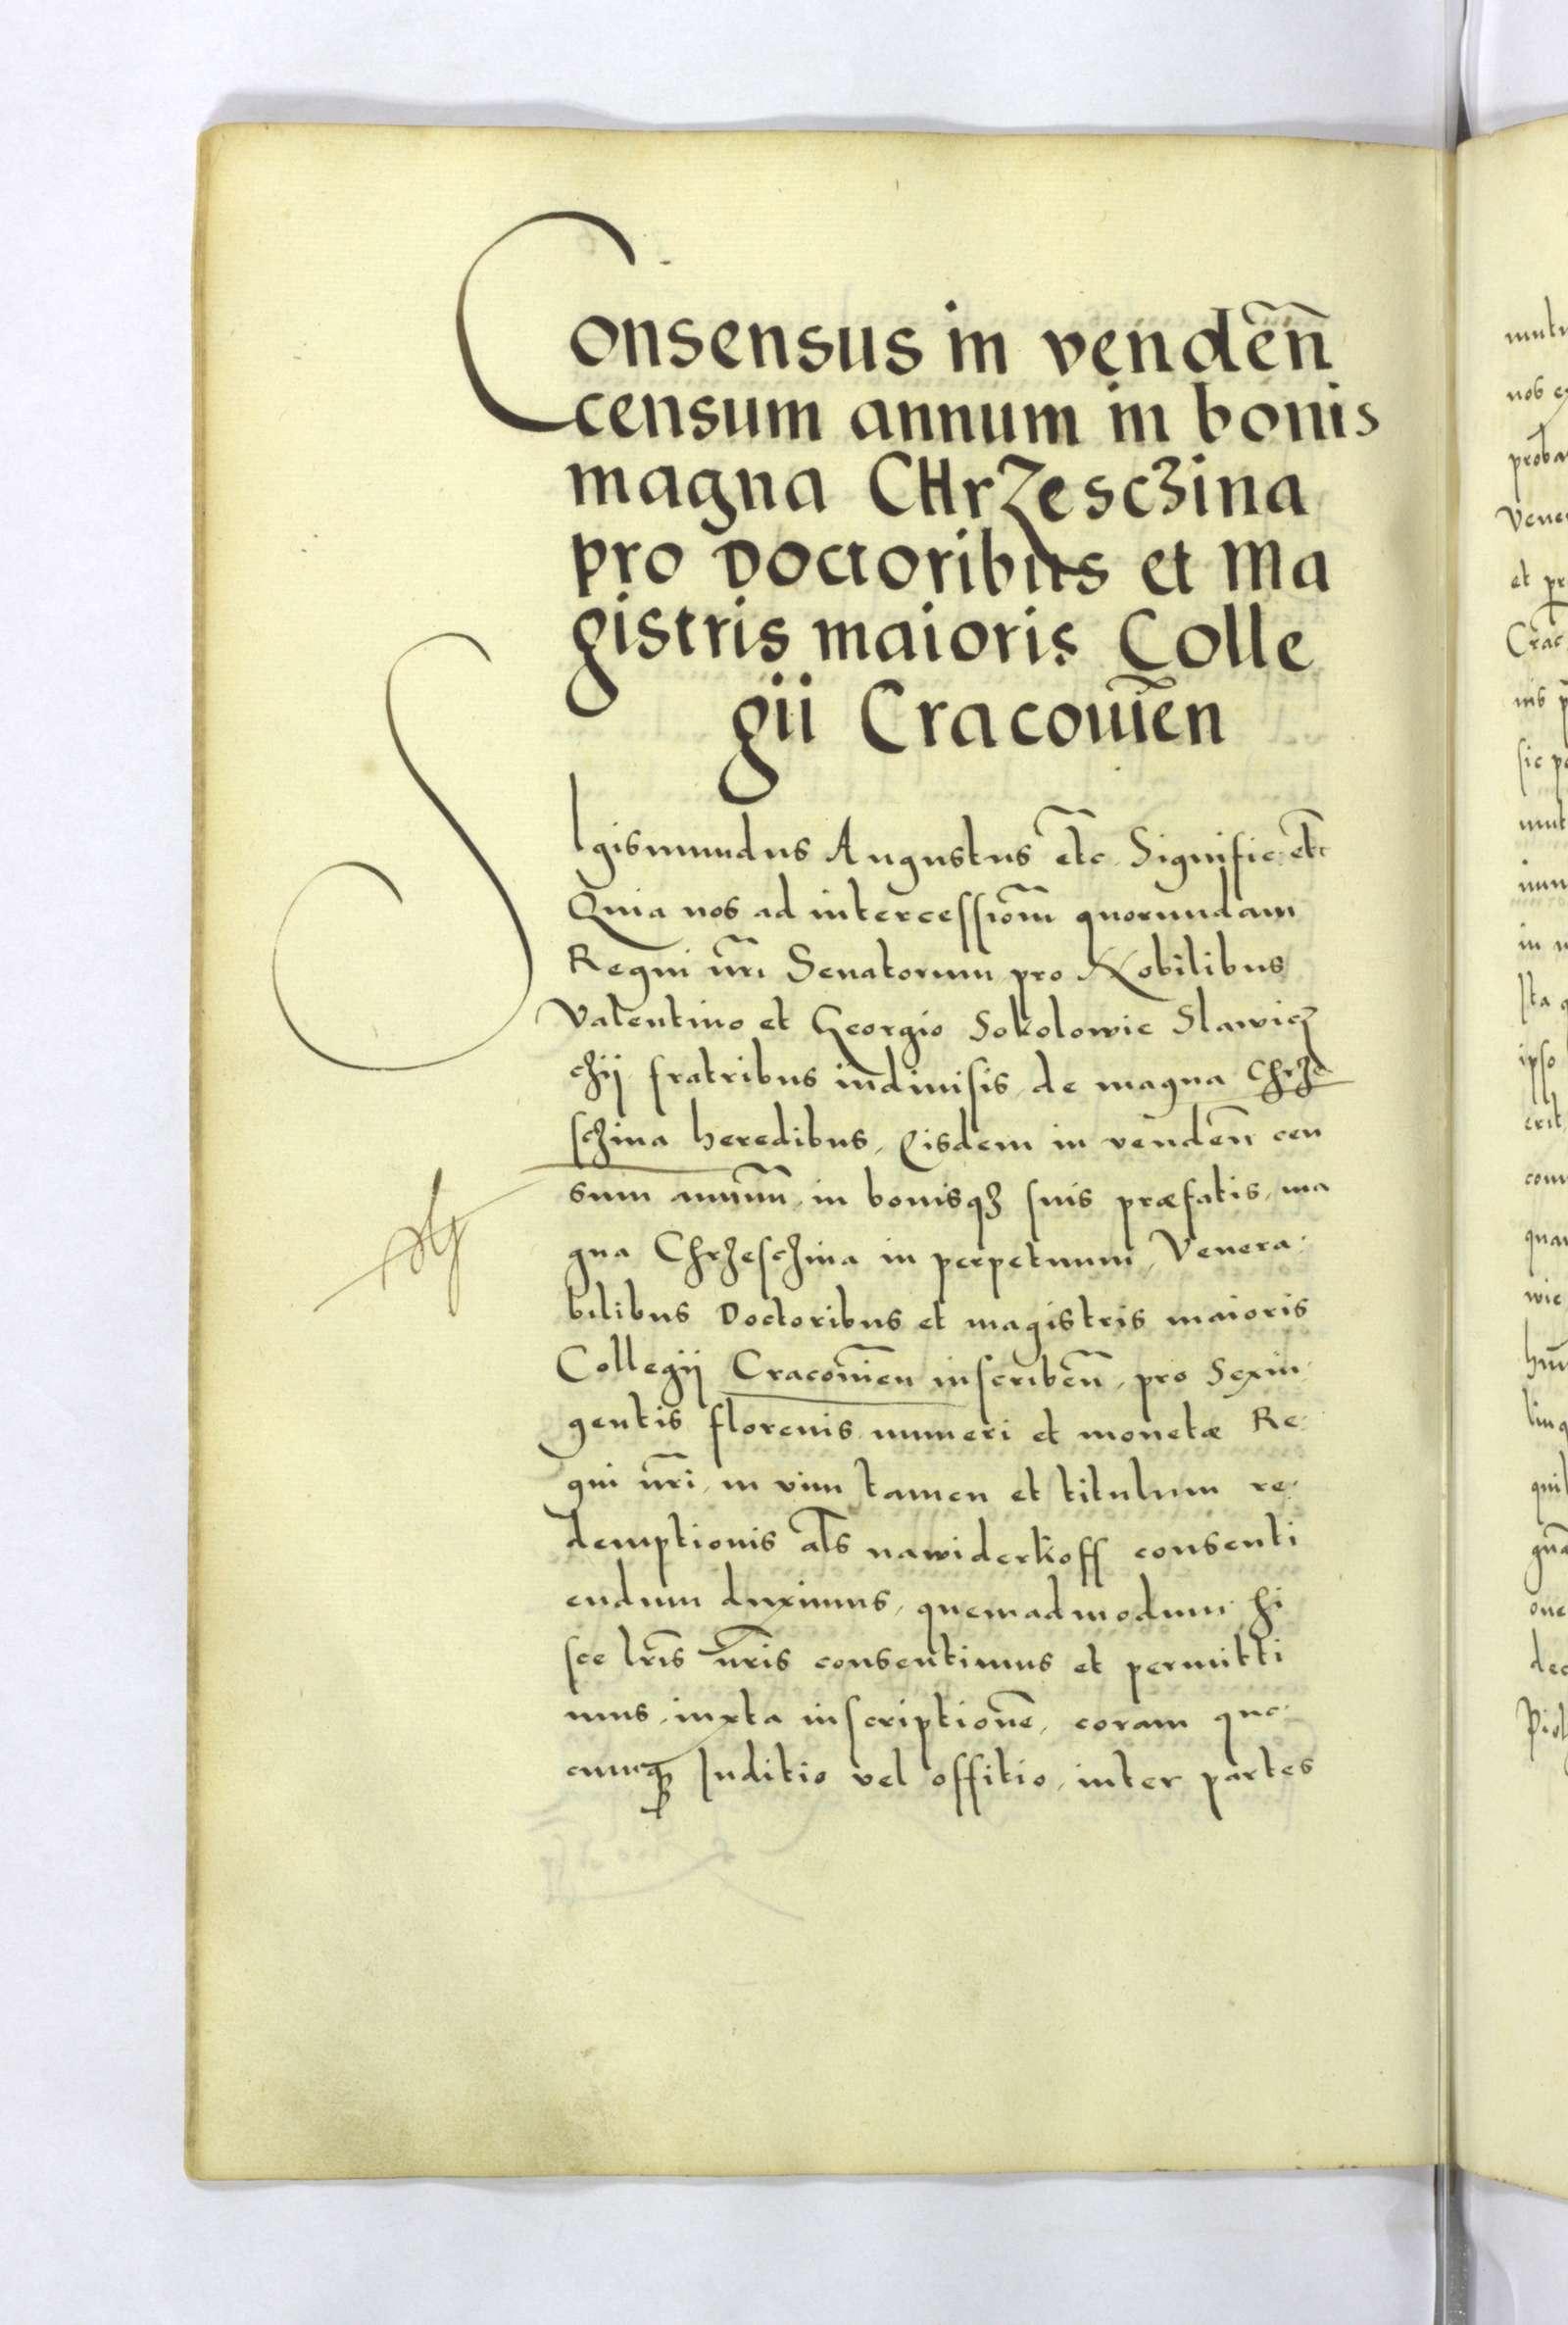 Consensus in vendeñ
censum annum in bonis
magna CHrZesc3ina
pro Doctoribus et Ma
gistris maioris Colle
gii Cracouieñ
SIgismundus Augustus etc̃. Signific: etc̃
Quia nos ad intercessiom̃ quorundam
Regni nr̃i Senatorum pro Nobilibus
Valentino et Georgio Sokolowie Slawicz
czÿ fratribus indiuisis, de magna Chrze
sczina heredibus, Eisdem in vendeñ cen
sum annuũm, in bonisqꝫ suis præfatis, ma
gna Chrzesczina in perpetuum, Venera:
bilibus Doctoribus et magistris maioris
Collegij Cracouień inscribeñ, pro Sexin:
gentis florenis numeri et monetæ Re:
gni nr̃i, in vim tamen et titulum re:
demptionis al̃s nawiderkoff consenti
endum duximus, quemadmodum hi
sce lr̃is nr̃is consentimus et permitti
mus, iuxta inscriptionẽ, coram quo:
cunqꝫ Iuditio vel offitio, inter partes
mut
nos e
proba
Vene
et pr
Crac
nis p
sic p
mut
in
sta
ipso
erit
com
qua
wie
lin
one
dec